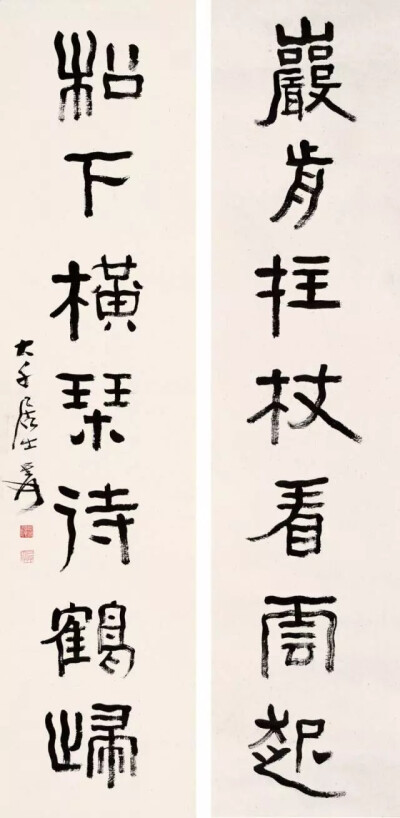 巖前拄杖看雲起
松下橫琴待鶴歸
大千居士爰